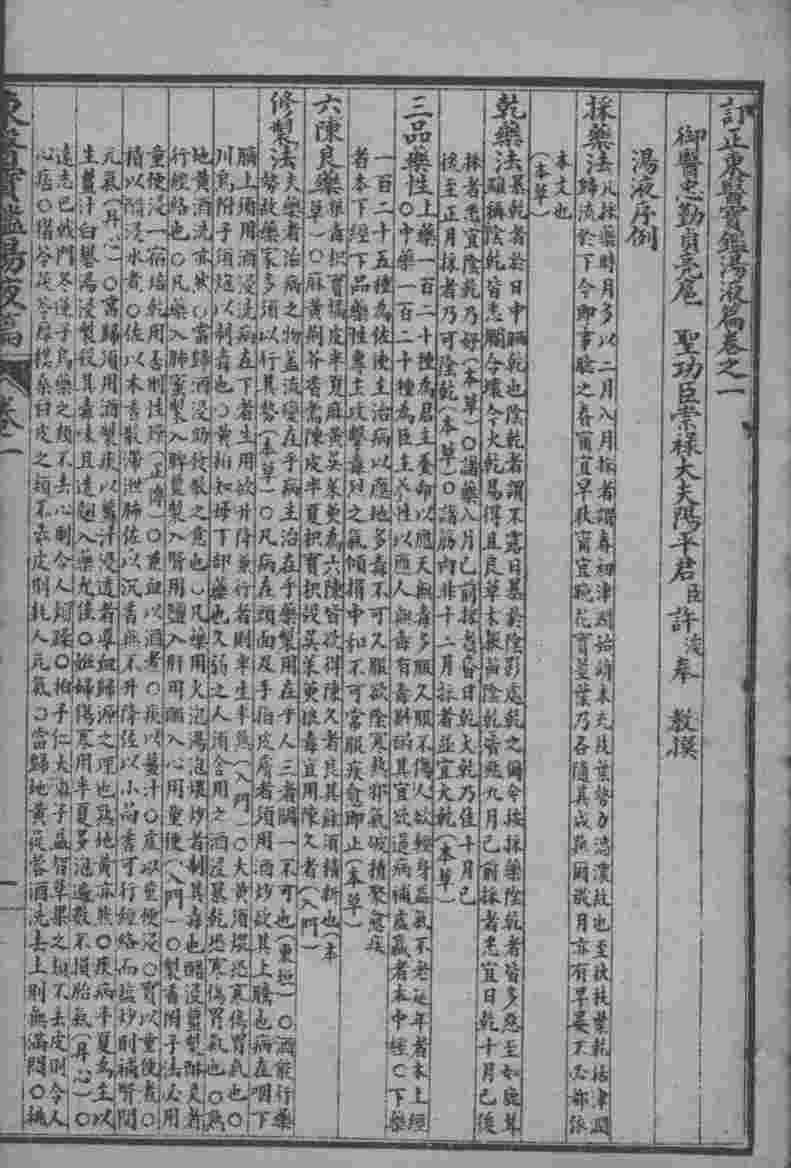 訂正東醫寶鑑湯液篇卷之一
御醫忠勤貞亮扈 聖功臣崇祿大夫陽平君臣許浚奉 教撰
湯液序例
採藥法 凡採藥時月多以二月八月採者謂春初津潤始萌未充枝葉勢力淳濃故也至秋枝葉乾枯津潤
歸流於下今卽事驗之春寧宜早秋寧宜晩花實莖葉乃各隨其成熟爾歲月亦有早晏不必都依
本文也
(本草)
乾藥法 暴乾者於日中晒乾也陰乾者謂不露日暴於陰影處乾之爾今按採藥陰乾者皆多惡至如鹿茸
雖稱陰乾皆悉爛令壞今火乾易得且良草木根苗陰乾皆惡九月已前採者悉宜日乾十月已後
採者悉宜陰乾乃好(本草)○諸藥八月已前採者日乾火乾乃佳十月已
後至正月採者乃可陰乾(本草)○諸筋肉非十二月採者並宜火乾(本草)
三品藥性 上藥一百二十種為君主養命以應天無毒多服久服不傷人欲輕身益氣不老延年者本上經
○中藥一百二十種為臣主養性以應人無毒有毒斟酌其宜欲遏病補虛羸者本中經○下藥
一百二十五種為佐使主治病以應地多毒不可久服欲除寒熱邪氣破積聚愈疾
者本下經下品藥性專主攻擊毒烈之氣傾損中和不可常服疾愈即止(本草)
六陳良藥 狼毒枳實橘皮半夏麻黃吳茱萸為六陳皆欲得陳久者良其餘須精新也(本
草)○麻黃荊芥香薷陳皮半夏枳實枳殼吳茱萸狼毒宜用陳久者(入門)
修製法 夫藥者治病之物盖流變在乎病主治在乎藥製用在乎人三者闕一不可也(東垣)○酒能行藥
勢故藥家多須以行其勢(本草)○凡病在頭面及手指皮膚者須用酒炒欲其上騰也病在咽下
臍上須用酒浸洗病在下者生用欲升降兼行者則半生半熟(入門)○大黃須煨恐寒傷胃氣也○
川烏附子須炮以制毒也○黃柏知母下部藥也久弱之人須合用之酒浸暴乾恐寒傷胃氣也○熟
地黃酒洗亦然○當歸酒浸助發散之意也○凡藥用火炮湯泡煨炒者制其毒也醋浸薑製酥灸者
行經絡也○凡藥入肺蜜製入脾薑製入腎用鹽入肝用醋入心用童便(入門)○製香附子法必用
童便浸一宿焙乾用否則性燥(正傳)○童血以酒煮○痰以薑汁○虛以童便浸○實以童便煮○
積以醋浸水煮○佐以木香散滯泄肺佐以沉香無不升降佐以小茴香可行經絡而鹽炒則補腎間
元氣(丹心)○當歸須用酒製痰以薑汁浸透者導血歸源之理也熟地黃亦然○痰病半夏為主以
生薑汁白礬湯浸製殺其毒味且造麴入藥尤佳○姙婦傷寒用半夏多泡遍數不損胎氣(丹心)○
遠志巴戟門冬蓮子烏藥之類不去心則令人煩躁○柏子仁大麻子益智草果之類不去皮則令人
心痞○猪苓茯苓厚樸桑白皮之類不去皮則耗人元氣○當歸地黃蓯蓉酒洗去土則無滿悶○桃
東醫寶鑑湯液篇 卷一 一